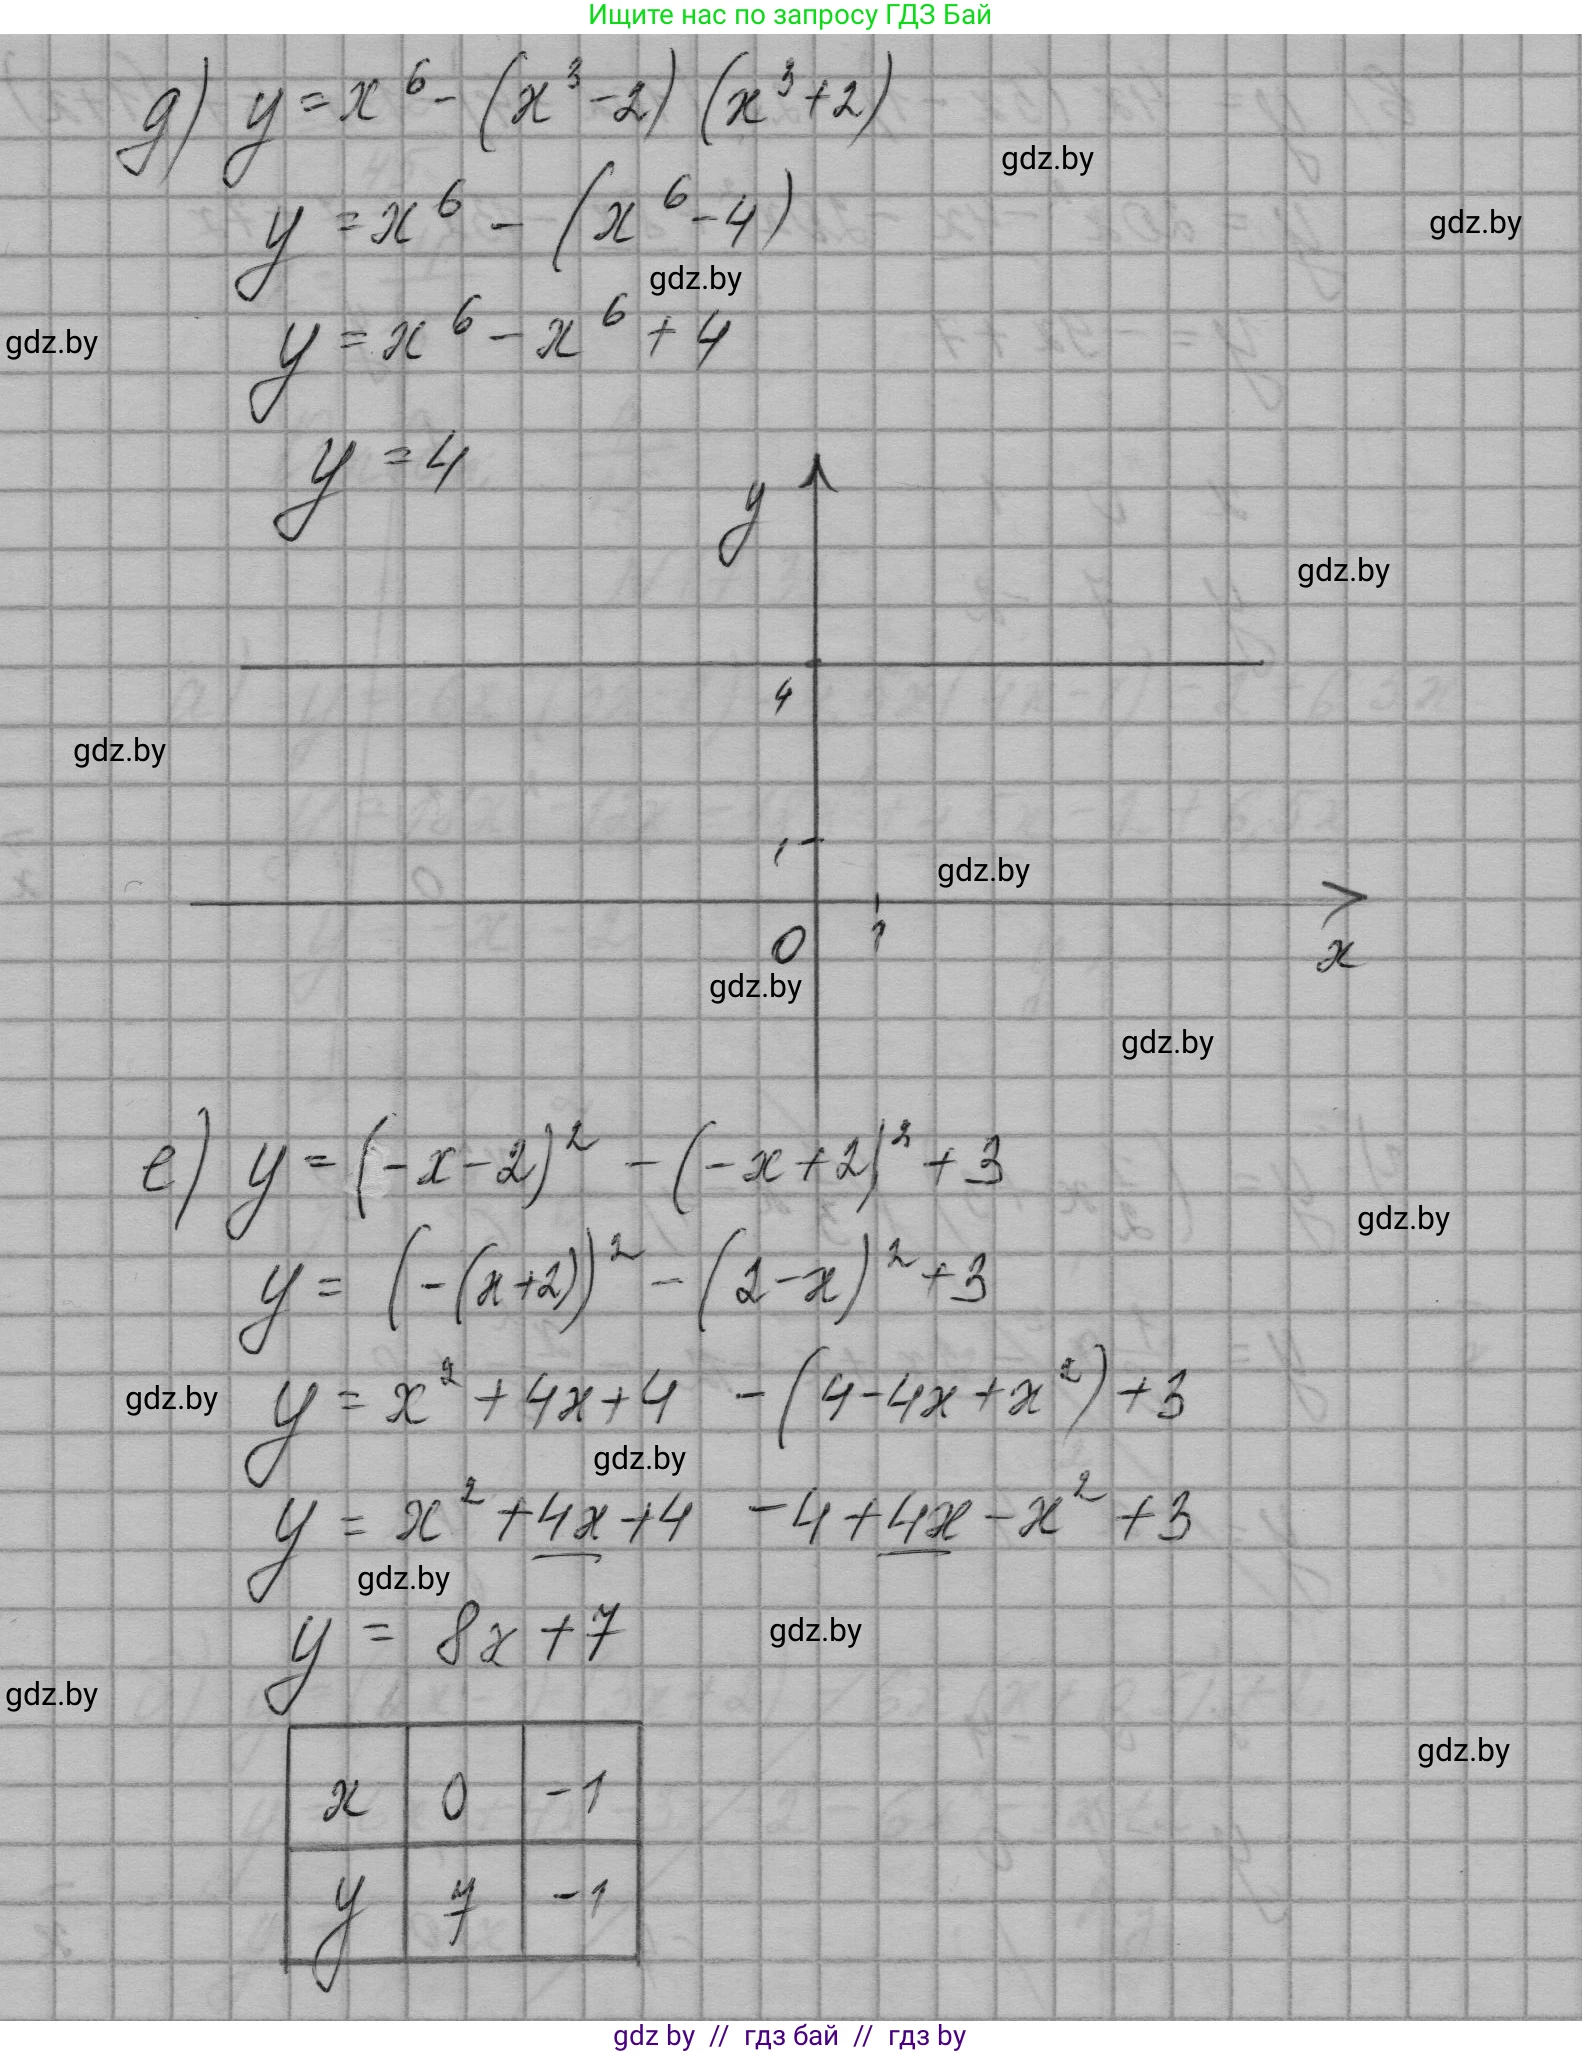 Ищите нас по запросу ГДЗ Бай
д) y = x⁶ - (x³ - 2) (x³ + 2)
gdz.by
y = x⁶ - (x⁶ - 4)
gdz.by
gdz.by
y = x⁶ - x⁶ + 4
gdz.by
y = 4
y
gdz.by
4
gdz.by
1
gdz.by
0 1 x
gdz.by
gdz.by
е) y = (-x-2)² - (-x+2)² + 3
gdz.by
y = (-(x+2))² - (2-x)² + 3
y = x² + 4x + 4 - (4 - 4x + x²) + 3
gdz.by
gdz.by
y = x² + 4x + 4 - 4 + 4x - x² + 3
gdz.by
y = 8x + 7
gdz.by
gdz.by
gdz.by
x 0 -1
y 7 -1
gdz by // гдз бай // гдз by